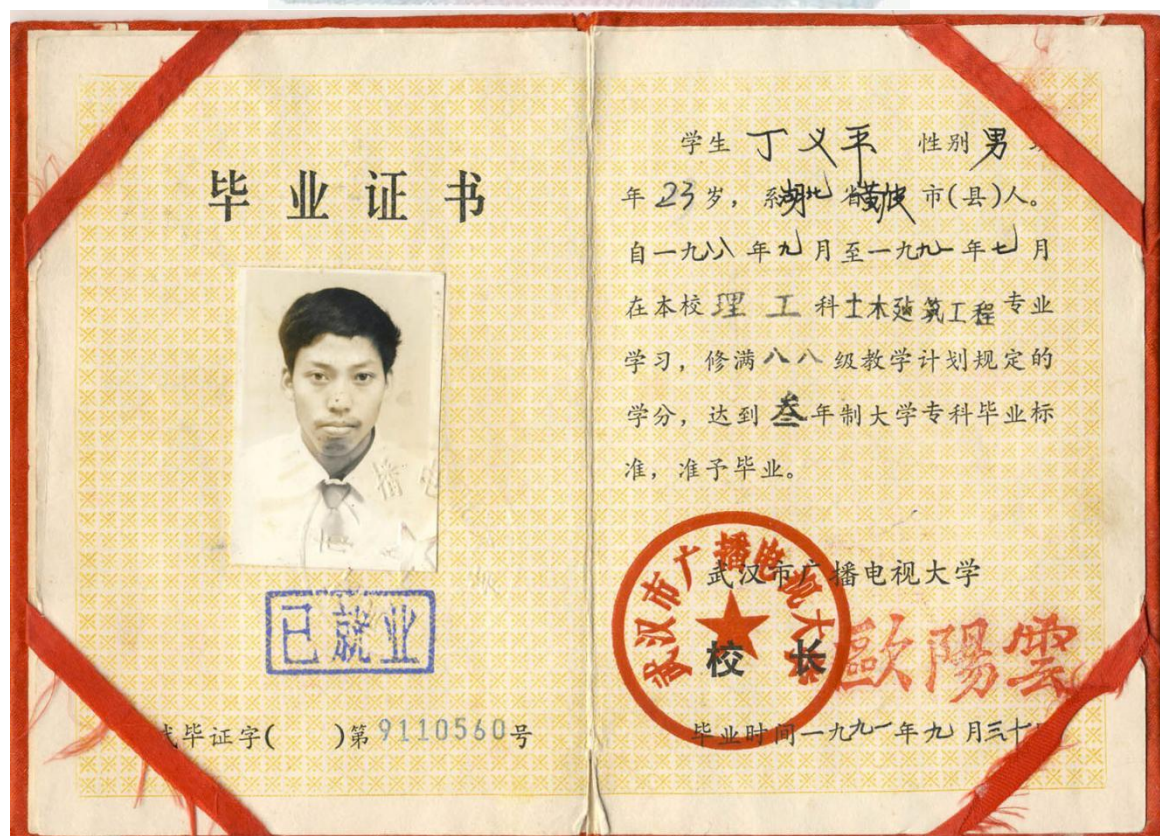 毕业证书
播电
已就业
毕证字( )第9110560号
学生 丁义平 性别 男
年 23 岁，系湖北省黄陂市(县)人。
自一九八八年九月至一九九一年七月
在本校 理工 科土木建筑工程专业
学习，修满八八级教学计划规定的
学分，达到叁年制大学专科毕业标
准，准予毕业。
武汉市广播电视大学
武汉市广播电视大
校长 歐陽雲
毕业时间一九九一年九月三十